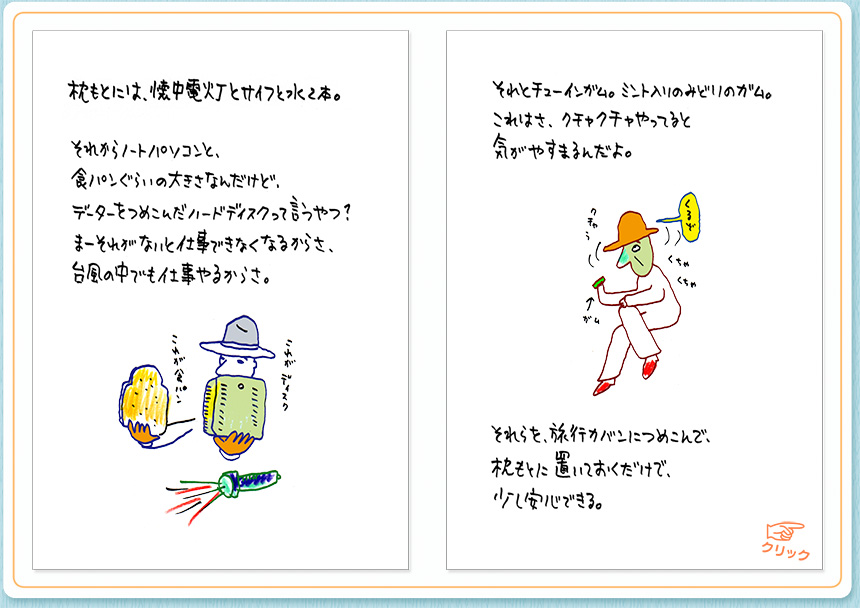 枕もとには、懐中電灯とサイフと水2本。
それからノートパソコンと、
食パンぐらいの大きさなんだけど、
データーをつめこんだハードディスクって言うやつ？
まーそれがないと仕事できなくなるからさ、
台風の中でも仕事やるからさ。
これが食パン
これがディスク
それとチューインガム。ミント入りのみどりのガム。
これはさ、クチャクチャやってると
気がやすまるんだよ。
くるぞ
クチャ
くちゃ
くちゃ
ガム
それらを、旅行カバンにつめこんで、
枕もとに置いておくだけで、
少し安心できる。
クリック